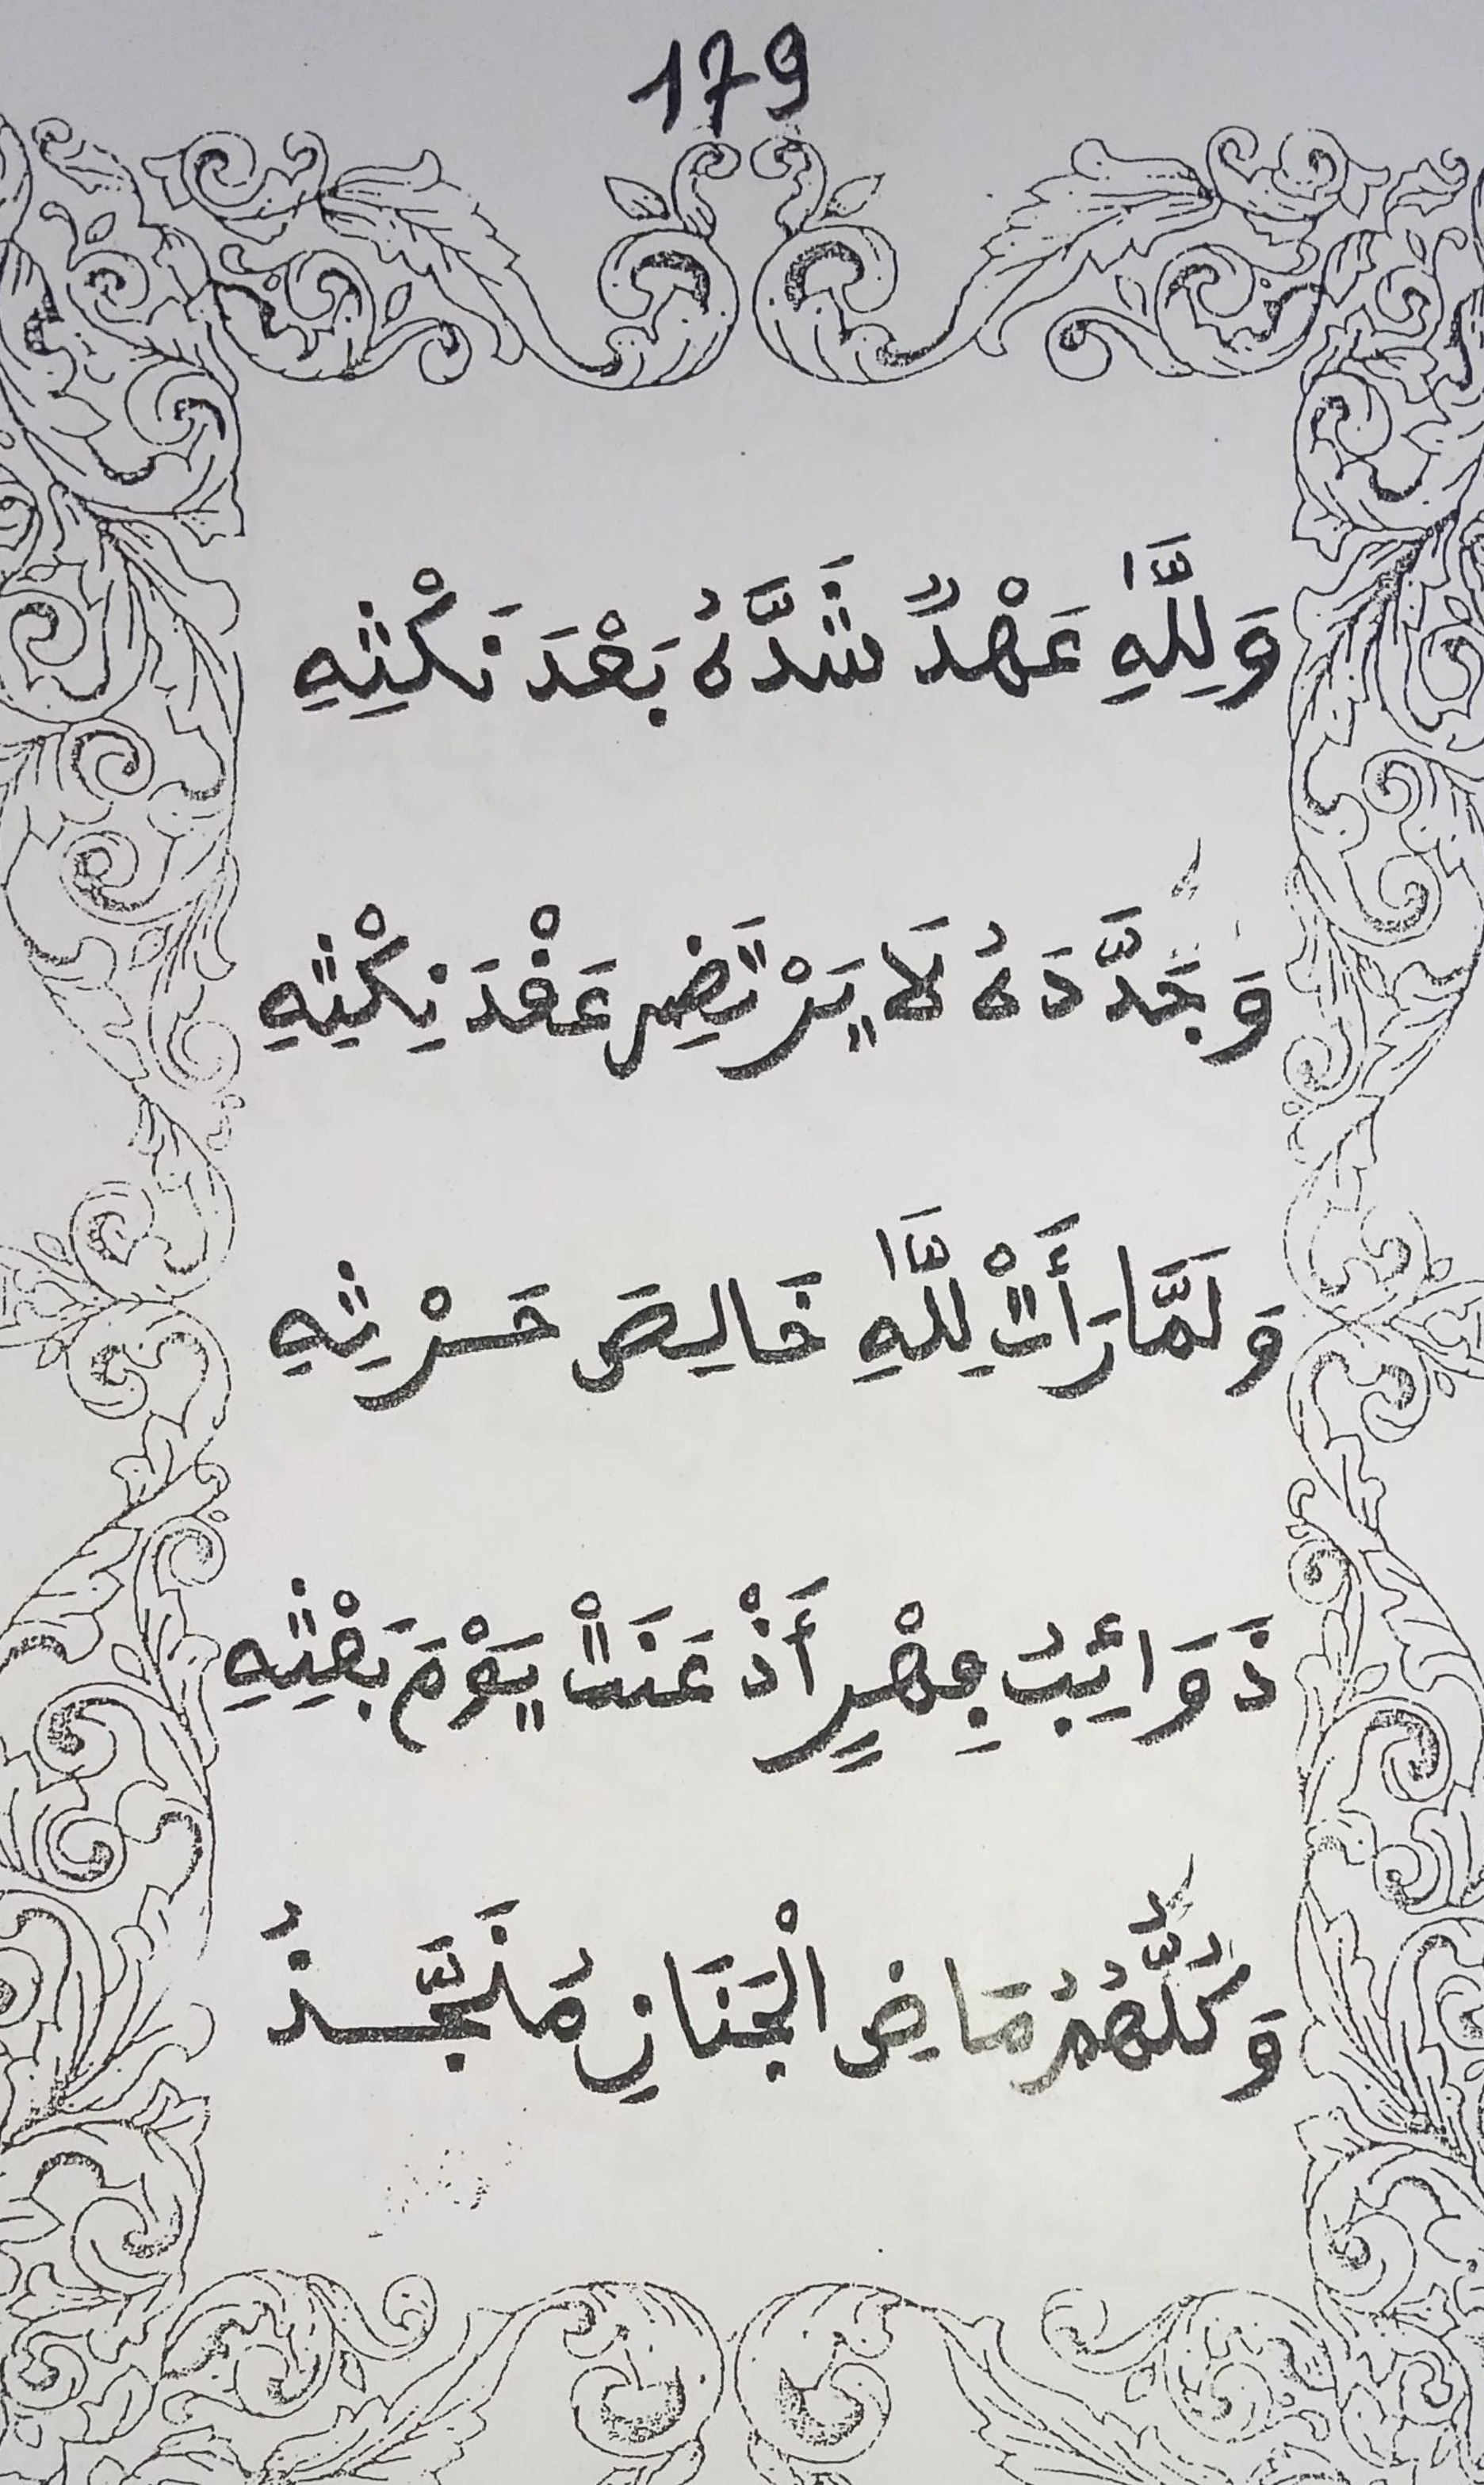 179
وَلِلَّهِ عَهْدٌ شَدَّهُ بَعْدَ نَكْثِهِ
وَجَدَّدَهُ لَا يَرْتَضِي عَقْدَ نِكْثِهِ
وَلَمَّا رَأَتْ لِلَّهِ خَالِصَ حَرْثِهِ
ذَوَائِبُ فِهْرٍ أَذْعَنَتْ يَوْمَ بَعْثِهِ
وَكُلُّهُمُ مَاضِ الْجَنَانِ مُنَجَّذُ